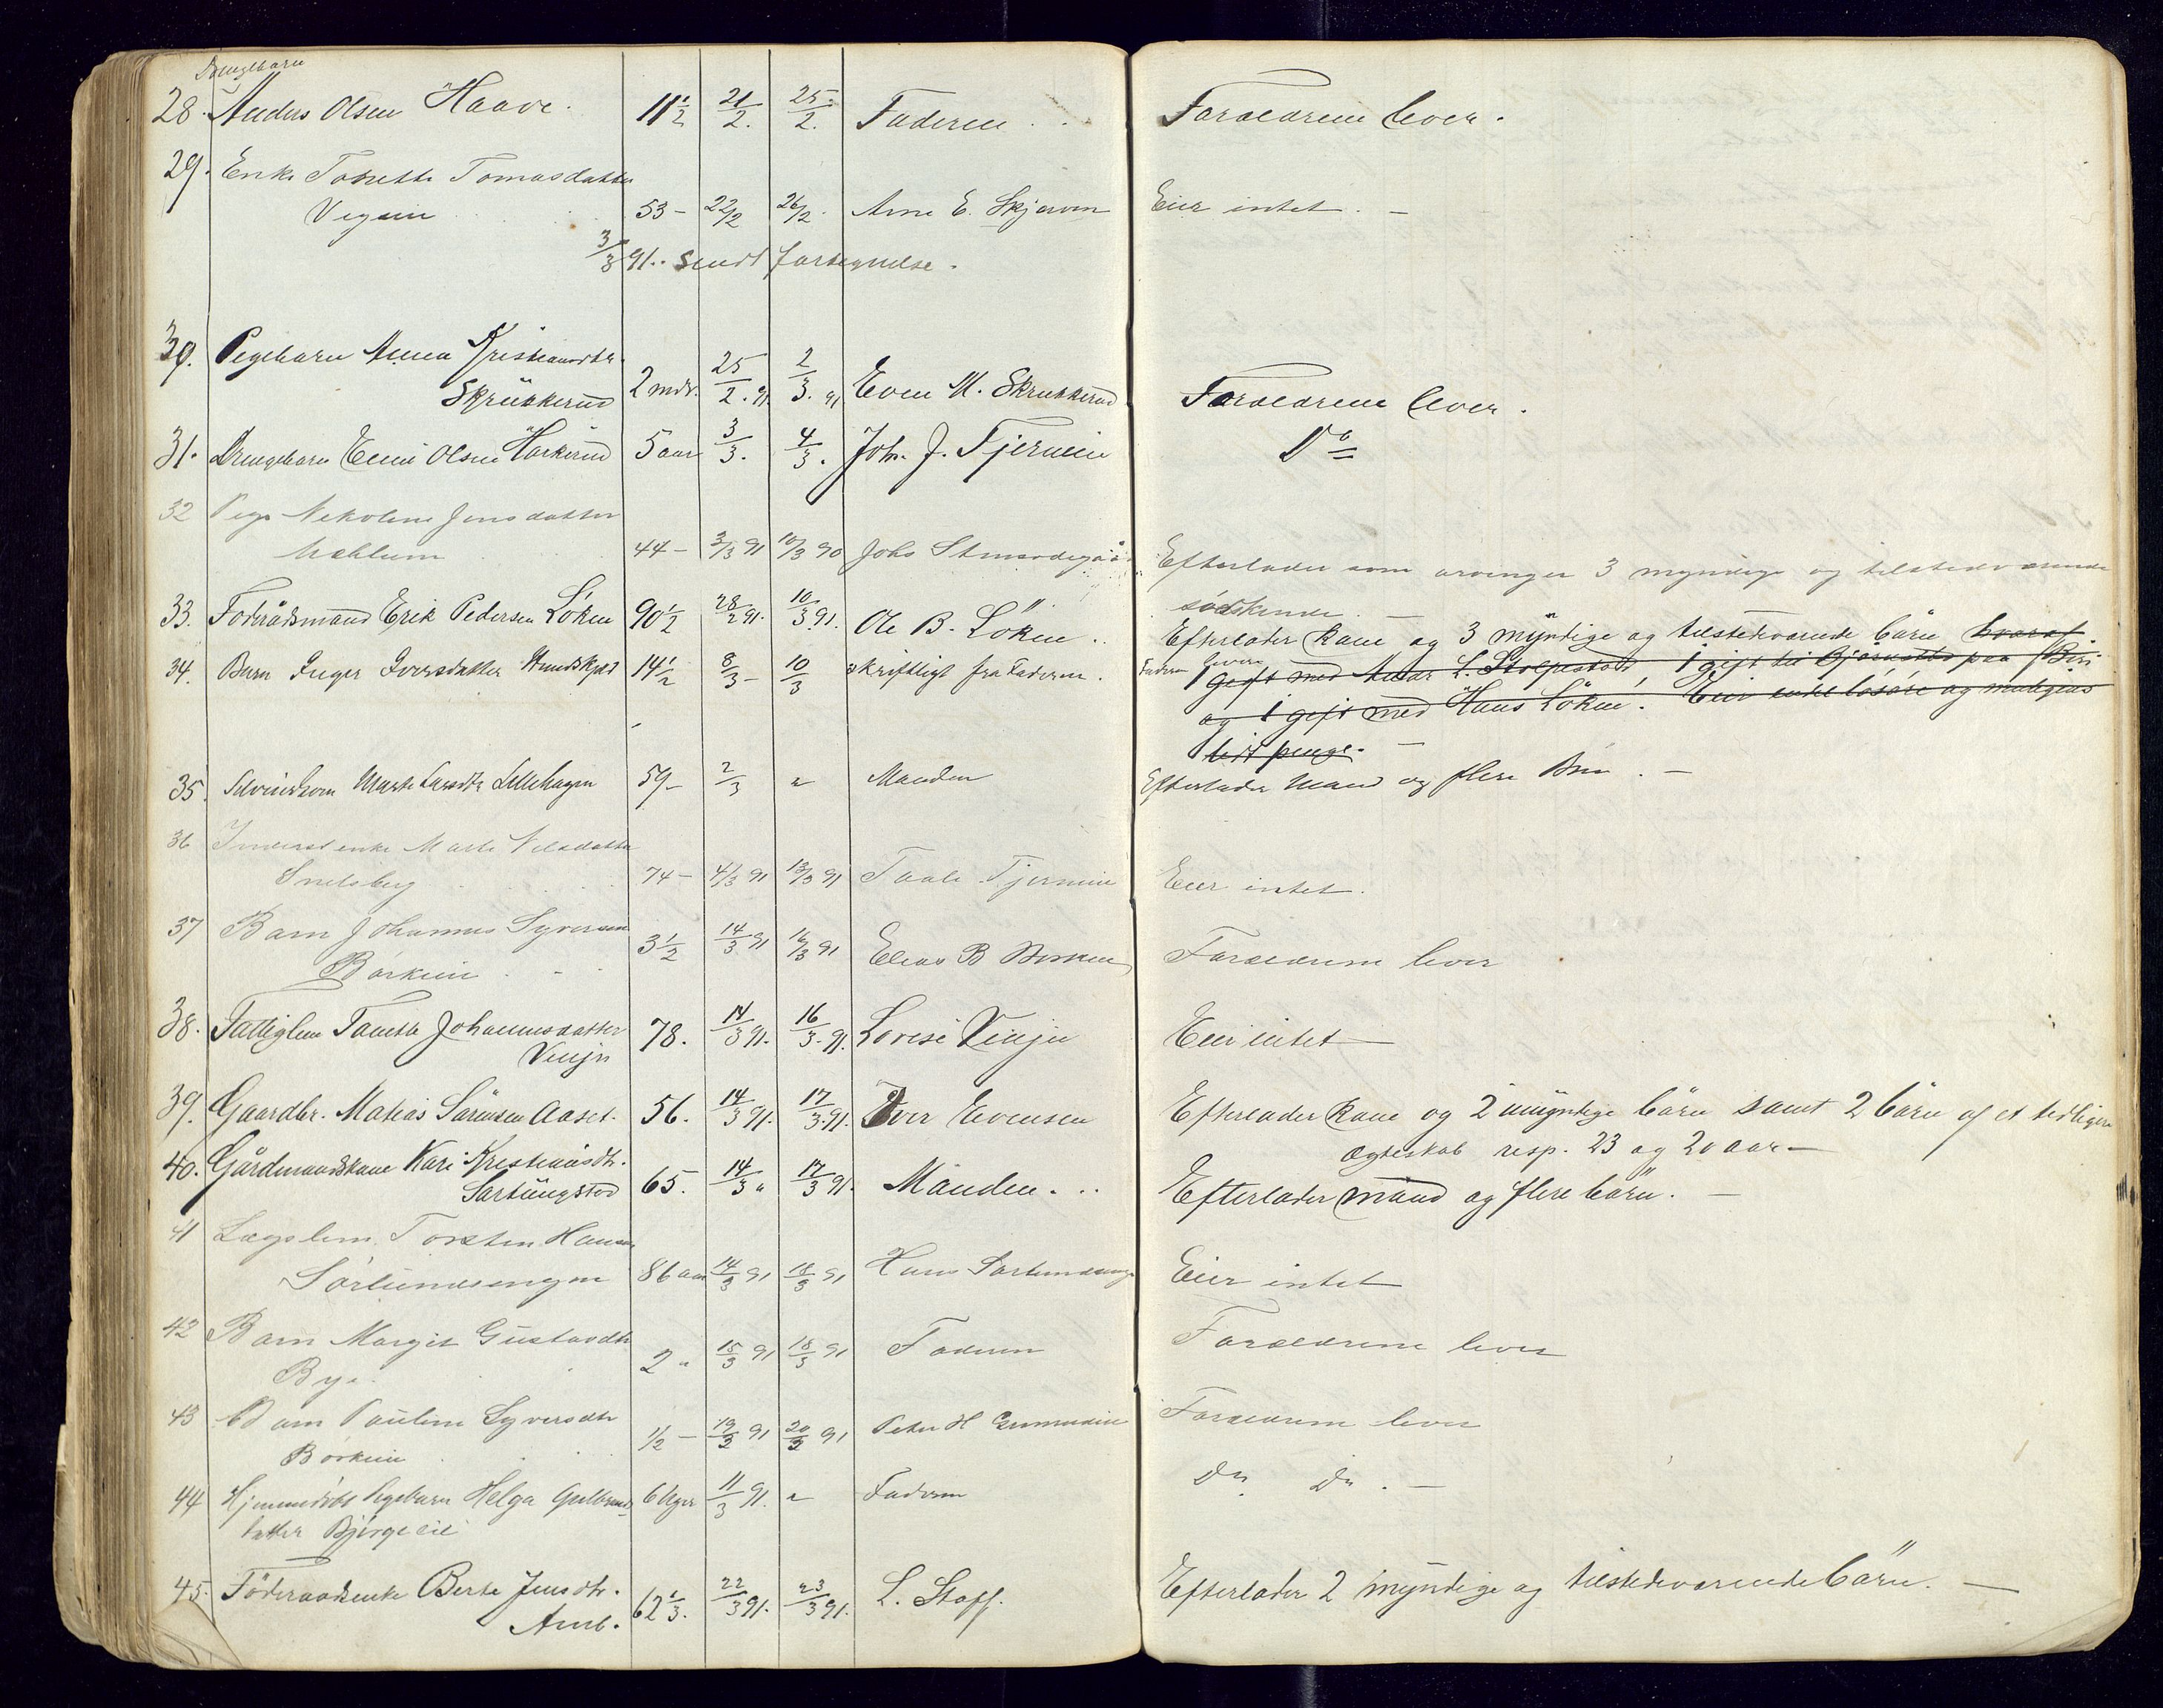 Drengebarn
28. Anders Olsen Haave. 11 1/2 21/2. 25/2. Faderen . . Forældrene lever.
29. Enke Tomasdatter
53 - 22/2 26/2. Arne E. Skjerven Eier intet. -
3/3 91. Sendt fortegnelse.
30. Pigebarn Anna Kristiansdtr.
Skrukkerud 2 mdr. 25/2. 91 2/3. 91 Even M. Skrukkerud Forældrene lever.
31. Drengebarn Olsen 5 aar 3/3. 4/3. Joh. J. Tjernein Do
32 Pige Nekoline Jensdatter
Mæhlum 44 - 3/3 91 10/3 90 Johs Efterlader som arvinger 3 myndige og tilstedeværende
södskende. -
33. Föderådsmand Erik Pedersen Löken 90 1/2 28/2 91. 10/3 91. Ole B. Löken .. Efterlader kone og 3 myndige og tilstedeværende börn hvoraf
34. Barn Inger Iversdatter 14 1/2 8/3 - 10/3 skriftligt fra Faderen. Faderen lever
1 gift med L. Stolpestad, 1 gift til paa Biri
og 1 gift med Hans Löken. Eier endel lösöre og muligens
lidt penge. -
35. Marte Larsdtr Lillehagen 59 - 2/3 " Manden Efterlader Mand og flere Börn. -
36 Inderst enke Marte Nilsdatter
Snelsberg 74 - 4/3 91 13/3 91 Taale Tjernein Eier intet.
37 Barn Johannes Syversen
Börkeie 3 1/2 14/3 91 16/3 91 Elias B Forældrene lever
38. Fattiglem Johannesdatter
78. 14/3 91. 16/3. 91. Lovise Eier intet -
39. Gaardbr. Matias Sörensen Aaset. 56. 14/3 91. 17/3. 91. Iver Evensen Efterlader kone og 2 umyndige börn samt 2 börn af et tidligere
ægteskab resp. 23 og 20 aar -
40. Gårdmandskone Kari Kristiansdtr.
65. 14/3 " 17/3 91. Manden. .. Efterlader mand og flere börn. -
41 Lægslem Torsten Hansen
Sörlundsengen 86 aar 14/3 91 18/3 91 Hans Eier intet
42 Barn Margit Gustavdtr
Bye. 2 " 15/3 91 18/3 91 Faderen Forældrene lever
43 Barn Pauline Syversdtr
Börkeie 1/2 - 19/3 91 20/3 91 Peter H Forældrene lever
44 Hjemmedöbt Pigebarn Helga Gulbrands
datter 6 Uger 11/3 91. " Faderen Do. Do. -
45. Föderaadsenke Berte Jensdtr.
62 1/3. 22/3 91. 23/3 91. L. Staff. Efterlader 2 myndige og tilstedeværende börn. -